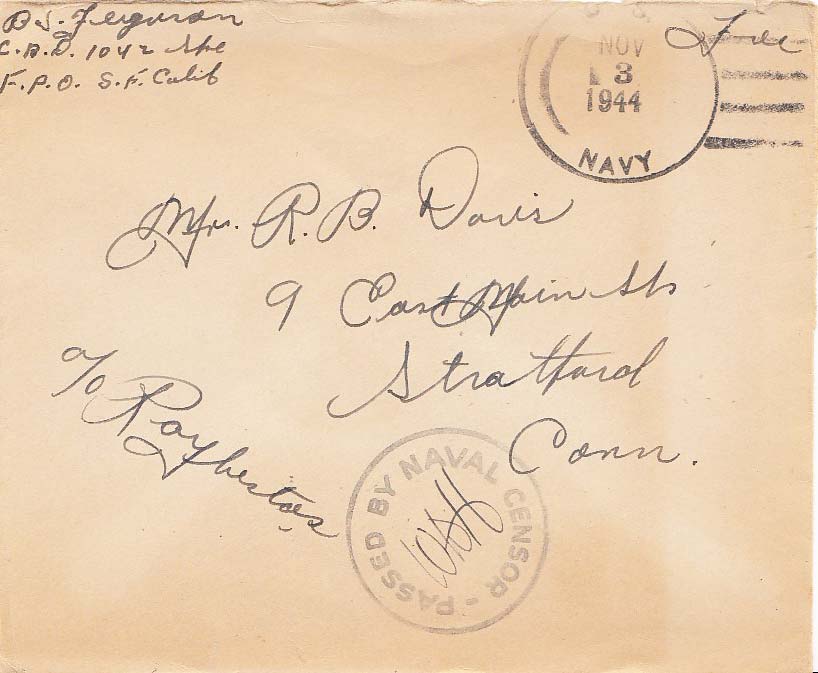 B S. Ferguson
C.B.D. 1042 Spe
F.P.O. S.F. Calif
NOV
3
1944
NAVY
Free
Mr. R. B. Davis
9 East Main St
Stratford
Conn.
c/o Raybestos
PASSED BY NAVAL CENSOR -